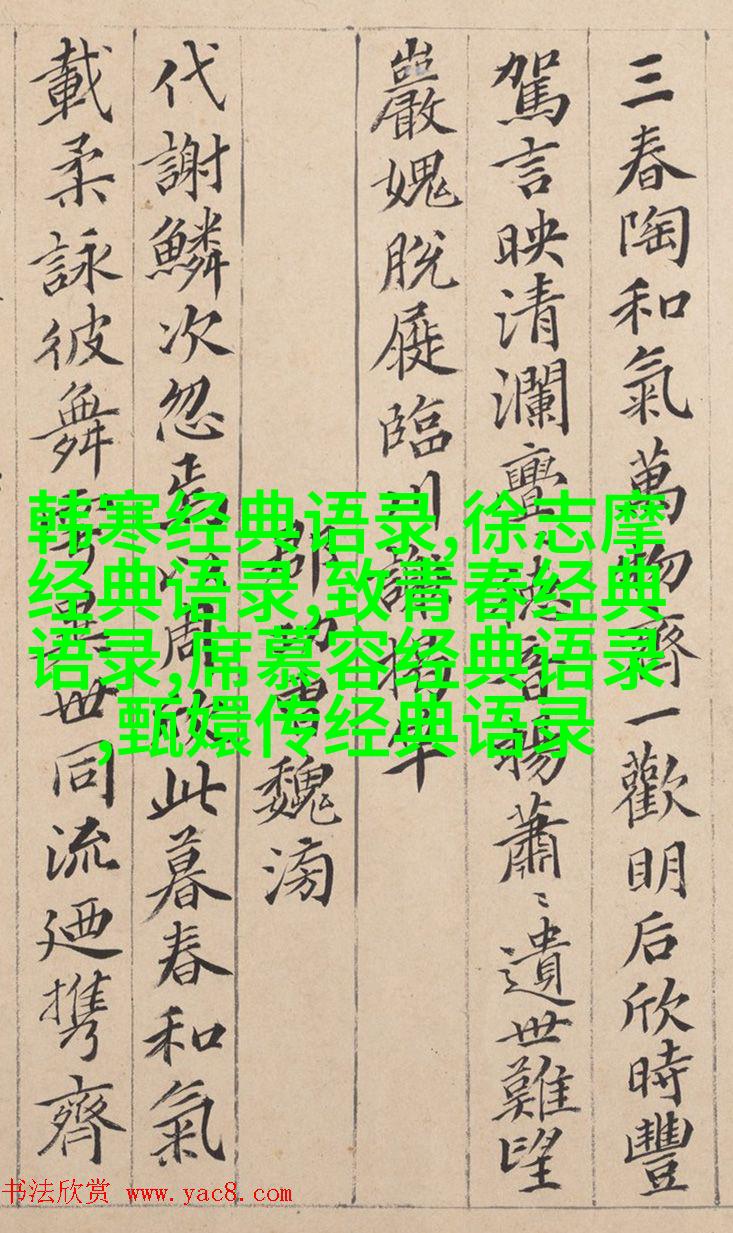 三春陶和氣萬物齊一歡明后欣時豐
駕言映清瀾亹德音暢蕭〻遺世難望
巖媿脫屣臨川謝揭竿
郡功曹魏滂
代謝鱗次忽焉以周欣此暮春和氣
載柔詠彼舞雩異世同流迺携齊
韩寒经典语录,徐志摩
经典语录,致青春经典
语录,席慕容经典语录
,甄嬛传经典语录
书法欣赏 www.yac8.com